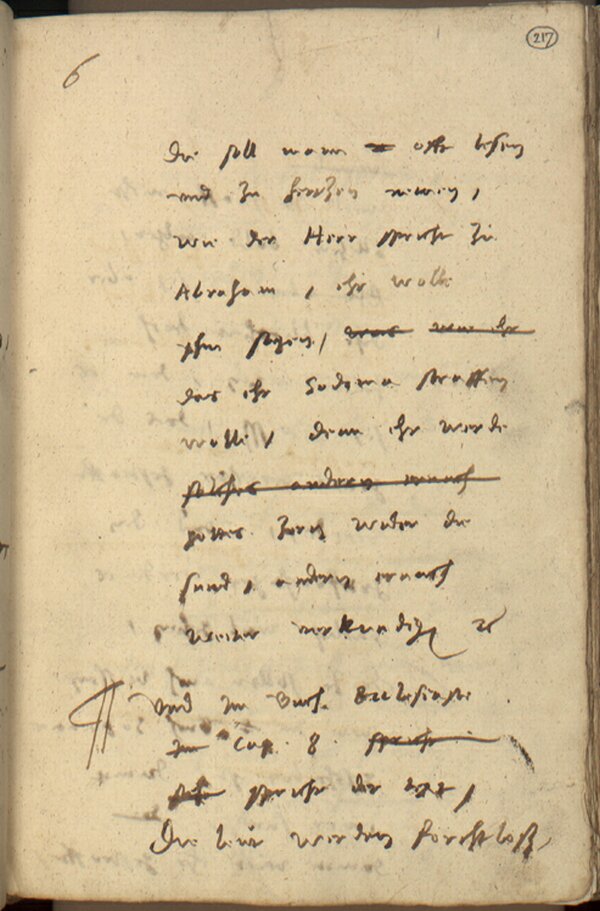 217
6
die soll mann offt lesen
und zu hertzen nemen,
wie der Herr spricht zu
Abraham, ehr wolle
yhm sagen, was wie ehr
das ehr Sodoma straffen
wolle, denn ehr werde
solches andern ernach
gottes zorn wider die
sund, andern ernach
weiter verkundigen
Und im Buch Ecclesiaste
im Cap. 8. spricht
spricht der text,
Die leut werden forchtloß,